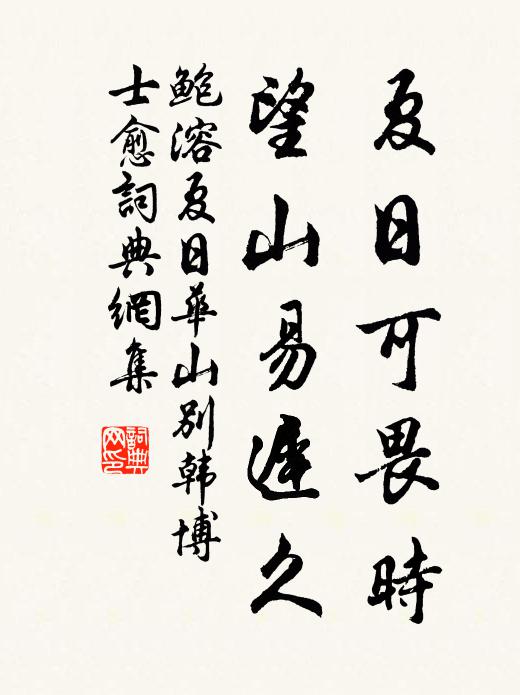 夏日可畏時
望山易遲久
鲍溶夏日華山别韩博
士愈詞典網集
詞典
网印